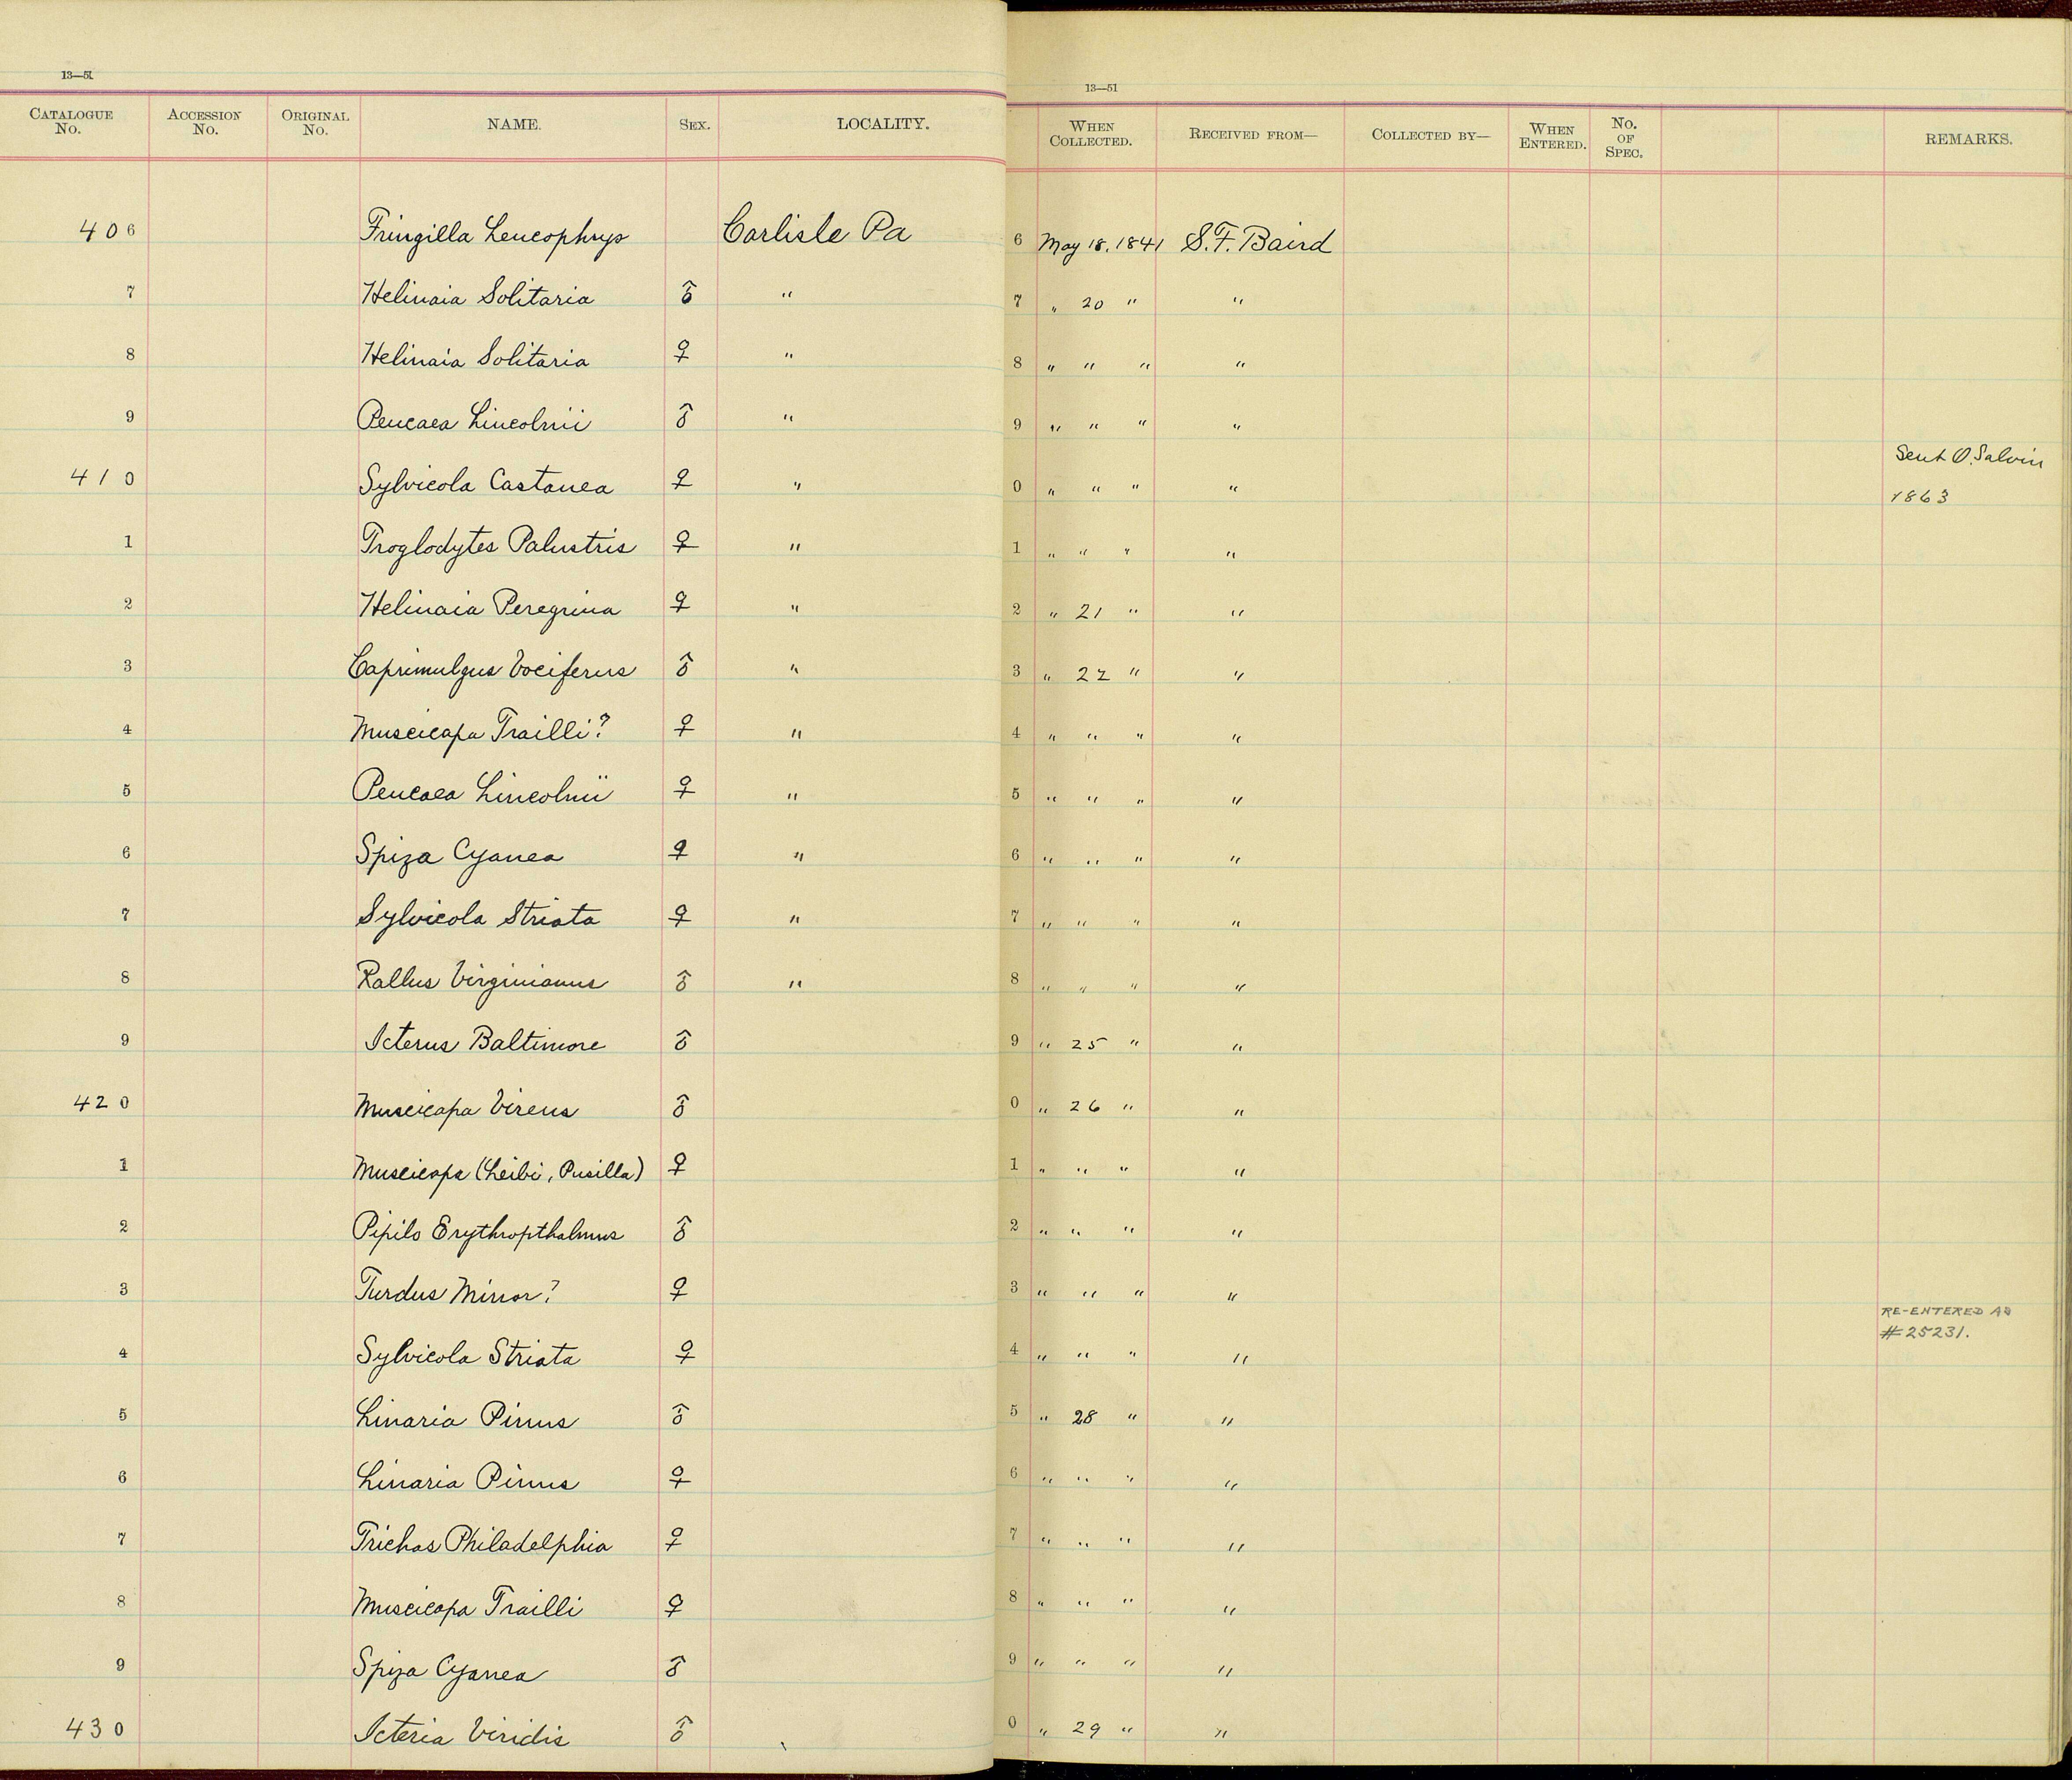 13—51
13—51
CATALOGUE No. ACCESSION No. ORIGINAL No. NAME. SEX. LOCALITY. WHEN COLLECTED. RECEIVED FROM— COLLECTED BY— WHEN ENTERED. No. OF SPEC. REMARKS.
406 Fringilla Leucophrys Carlisle Pa 6 May 18, 1841 S. F. Baird
7 Helinaia Solitaria ♂ " 7 " 20 " "
8 Helinaia Solitaria ♀ " 8 " " " "
9 Peucaea Lincolnii ♂ " 9 " " " "
410 Sylvicola Castanea ♀ " 0 " " " " Sent O. Salvin
1863
1 Troglodytes Palustris ♀ " 1 " " " "
2 Helinaia Peregrina ♀ " 2 " 21 " "
3 Caprimulgus Vociferus ♂ " 3 " 22 " "
4 Muscicapa Trailli? ♀ " 4 " " " "
5 Peucaea Lincolnii ♀ " 5 " " " "
6 Spiza Cyanea ♀ " 6 " " " "
7 Sylvicola Striata ♀ " 7 " " " "
8 Rallus Virginianus ♂ " 8 " " " "
9 Icterus Baltimore ♂ 9 " 25 " "
420 Muscicapa Virens ♂ 0 " 26 " "
1 Muscicapa (Leibi, Pusilla) ♀ 1 " " " "
2 Pipilo Erythropthalmus ♂ 2 " " " "
3 Turdus Minor? ♀ 3 " " " "
RE-ENTERED AS
#25231.
4 Sylvicola Striata ♀ 4 " " " "
5 Linaria Pinus ♂ 5 " 28 " "
6 Linaria Pinus ♀ 6 " " " "
7 Trichas Philadelphia ♀ 7 " " " "
8 Muscicapa Trailli ♀ 8 " " " "
9 Spiza Cyanea ♂ 9 " " " "
430 Icteria Viridis ♂ 0 " 29 " "